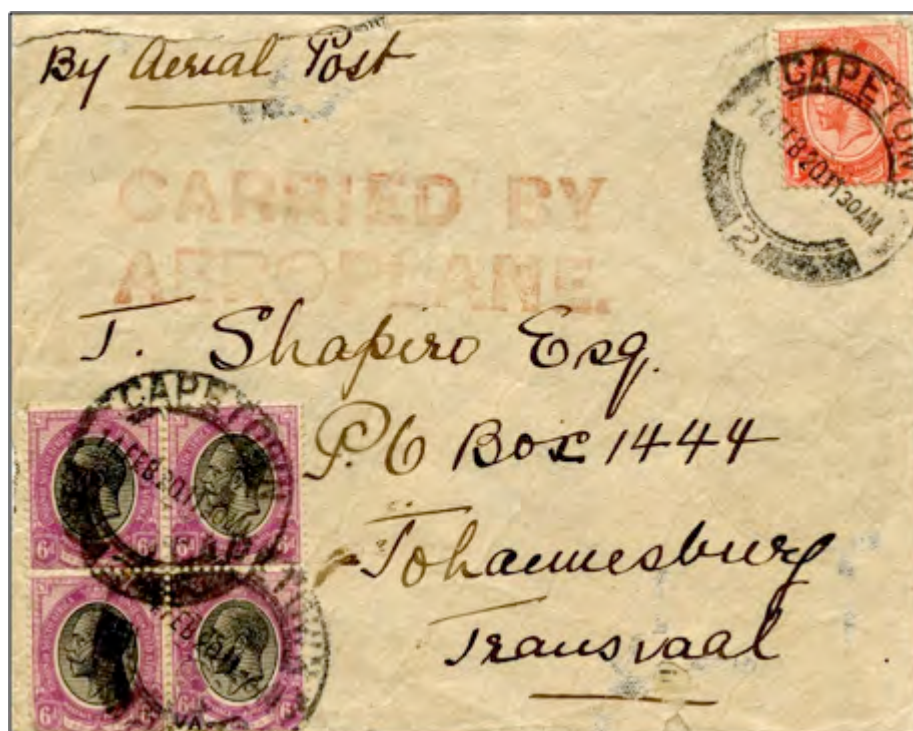 By Aerial Post
CAPETOWN
14 FEB 20 11 30 AM
2
CARRIED BY
AEROPLANE.
J. Shapiro Esq.
P.O Box 1444
Johannesburg
Transvaal
CAPETOWN
14 FEB 20 11
6d
6d
6d
6d
6d
6d